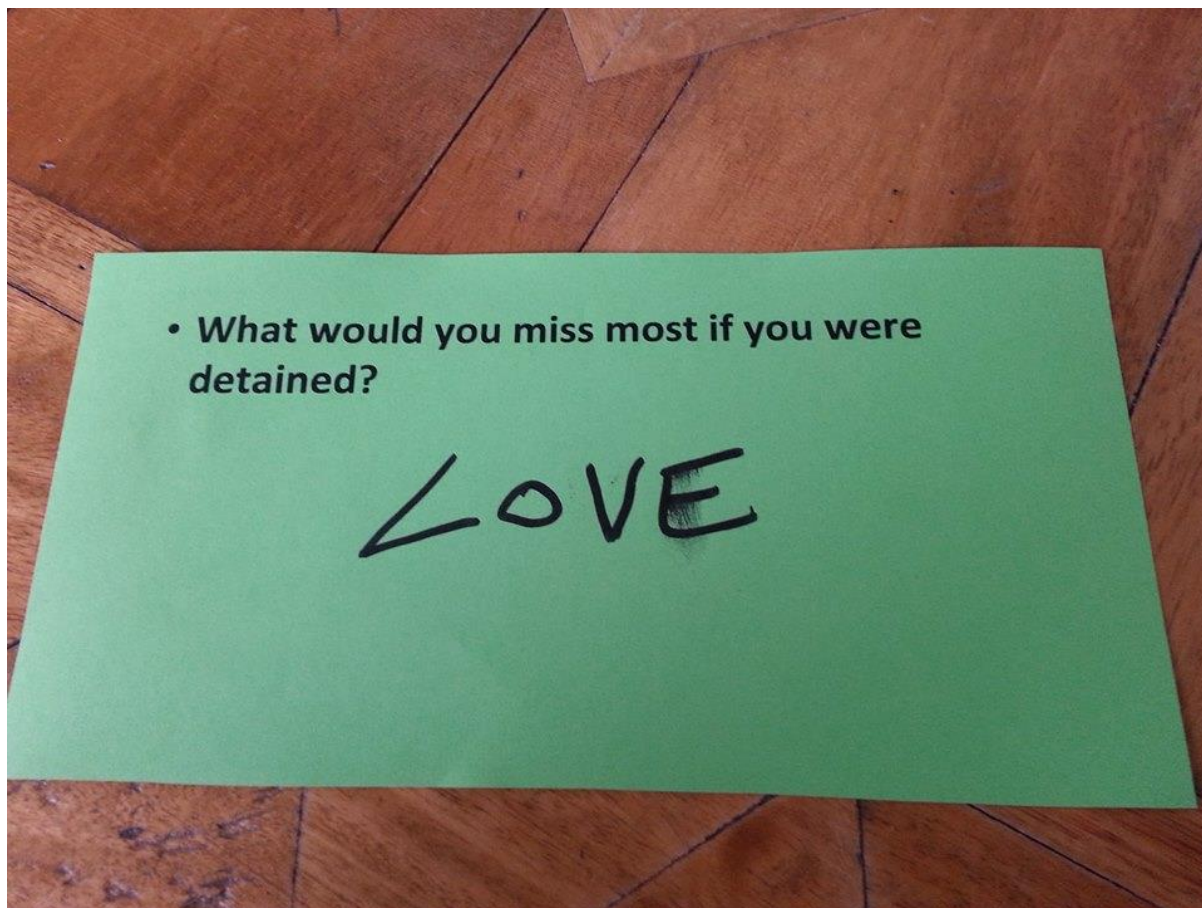 • What would you miss most if you were
detained?
LOVE